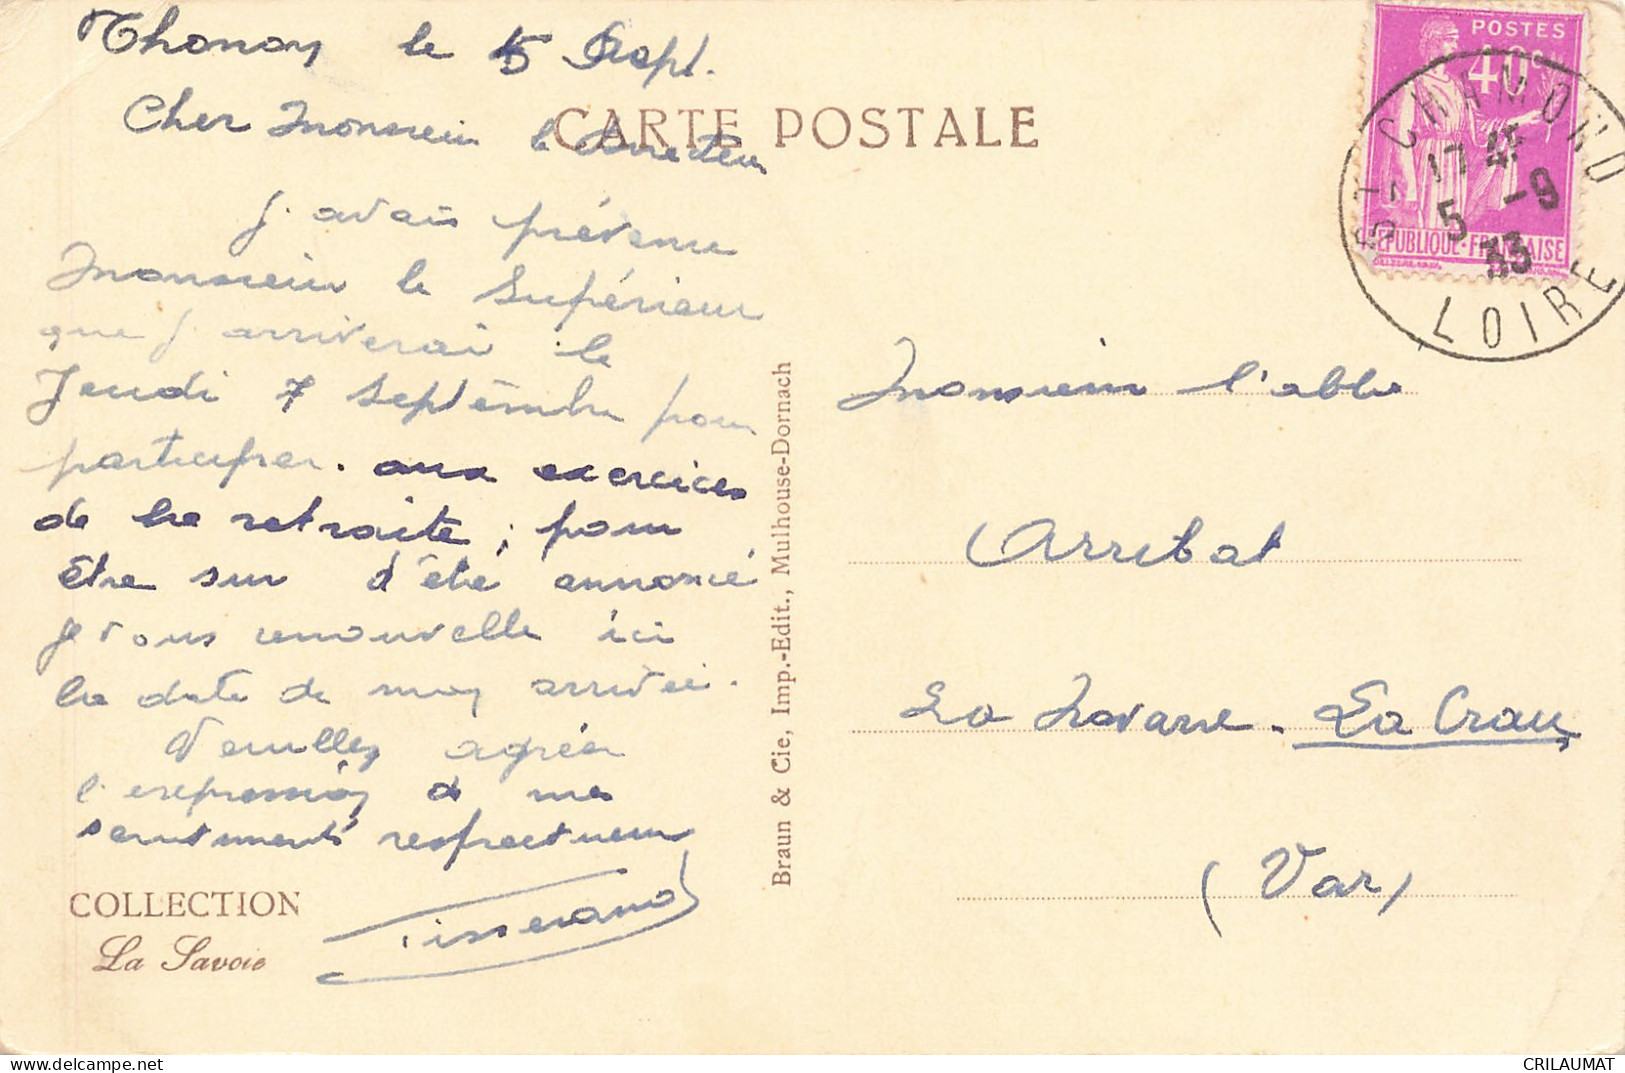 Thonon le 5 Sept.
CARTE POSTALE
Cher Monsieur le Directeur
J'avais prévenu
Monsieur le Supérieur
que j'arriverai le
Jeudi 7 Septembre pour
participer aux exercices
de la retraite ; pour
être sur d'être annoncé
je vous renouvelle ici
la date de mon arrivée.
Veuillez agréer
l'expression de mes
sentiments respectueux
Tisserand
COLLECTION
La Savoie
Braun & Cie, Imp.-Edit., Mulhouse-Dornach
POSTES
40 c.
REPUBLIQUE·FRANÇAISE
ST CHAMOND
17 45
5 -9
33
LOIRE
Monsieur l'abbé
Arribat
La Navarre. La Crau,
(Var)
CRILAUMAT